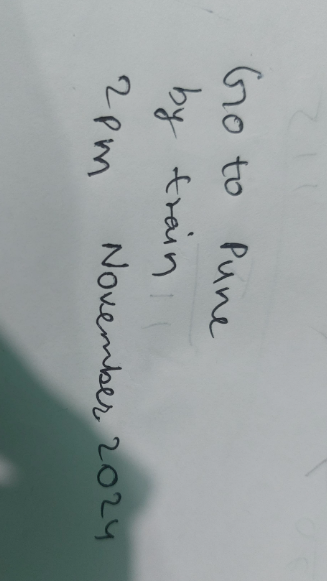 Go to Pune
by train
2pm November 2024